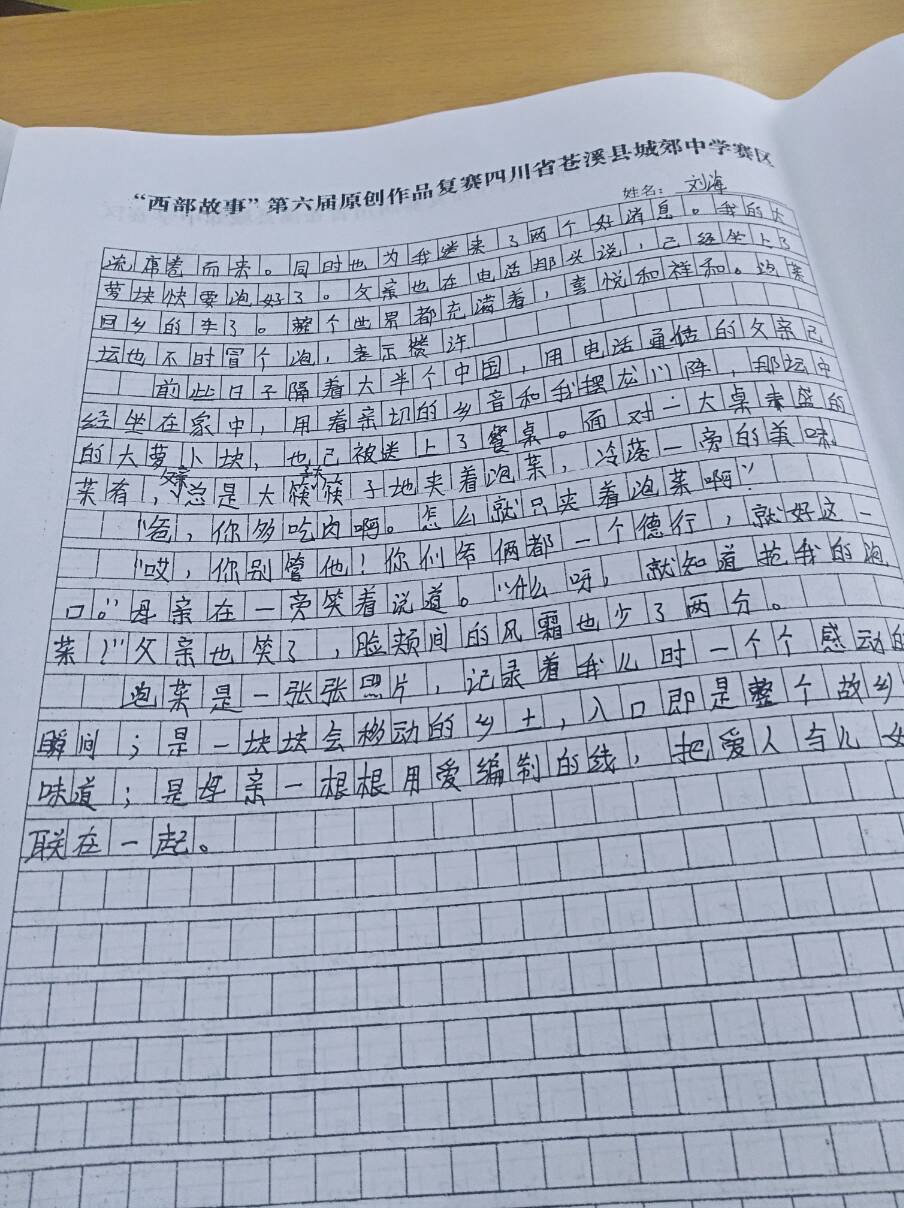 “西部故事”第六届原创作品复赛四川省苍溪县城郊中学赛区
姓名：刘海
流席卷而来。同时也为我送来了两个好消息。我的大
萝块快要泡好了。父亲也在电话那头说，已经坐上了
回乡的车了。整个世界都充满着，喜悦和祥和。泡菜
坛也不时冒个泡，表示赞许
前些日子隔着大半个中国，用电话通信的父亲已
经坐在家中，用着亲切的乡音和我摆龙门阵，那坛中
的大萝卜块，也已被送上了餐桌。面对一大桌丰盛的
菜肴，父亲总是大筷子大筷子地夹着泡菜，冷落一旁的美味
“爸，你多吃肉啊。怎么就只夹着泡菜啊”
“哎，你别管他！你们爷俩都一个德行，就好这一
口。”母亲在一旁笑着说道。“什么呀，就知道抢我的泡
菜！”父亲也笑了，脸颊间的风霜也少了两分。
泡菜是一张张照片，记录着我儿时一个个感动的
瞬间；是一块块会移动的乡土，入口即是整个故乡
味道；是母亲一根根用爱编制的线，把爱人与儿女
联在一起。